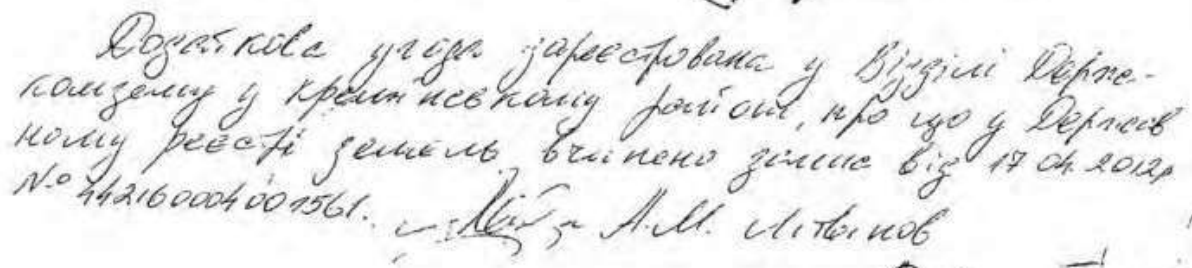 Додаткова угода зареєстрована у Відділі Держ-
комзему у Кремінському районі, про що у Держав
ному реєстрі земель вчинено запис від 17 04. 2012р
№ 442160004001561. А.М. Литвинов